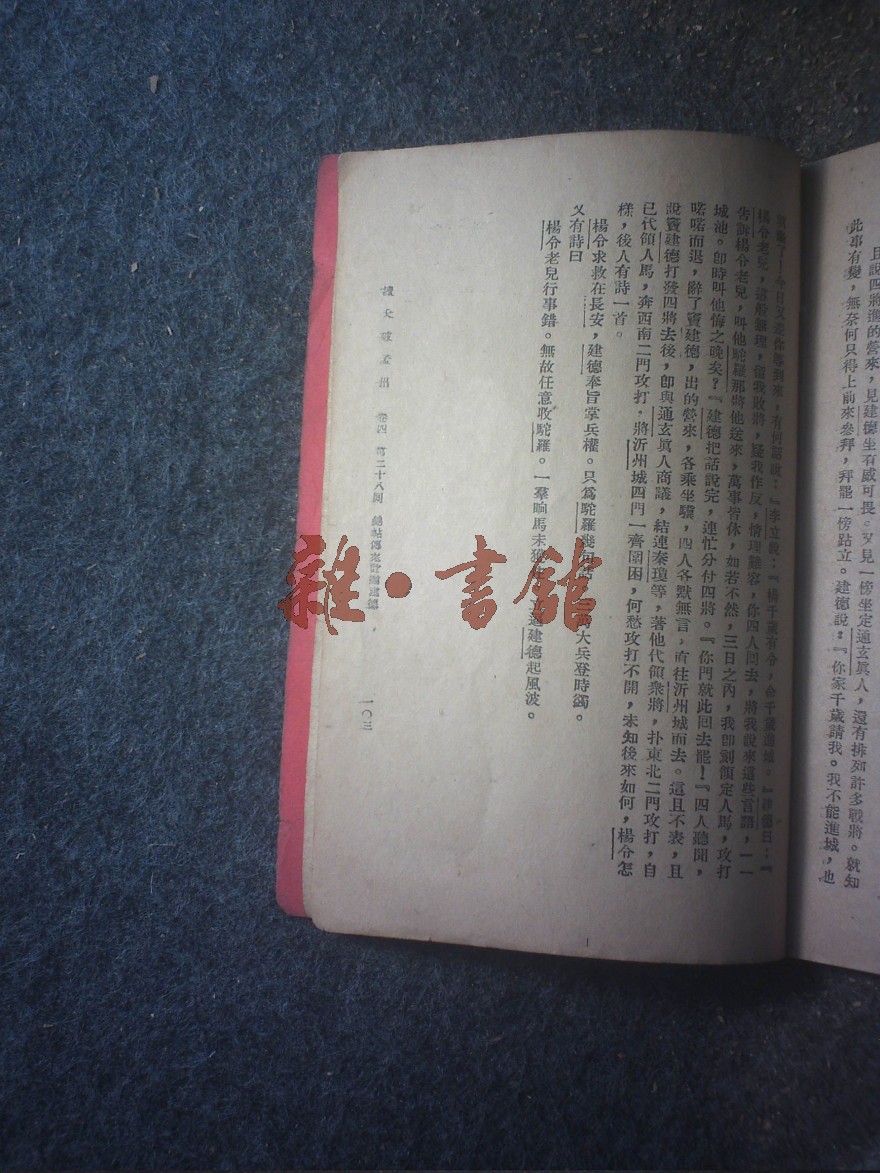 且說四將進的營來，見建德坐有威可畏。又見一傍坐定通玄眞人，還有排列許多戰將。就知
此事有變，無奈何只得上前來參拜，拜罷一傍跕立。建德說：『你家千歲請我。我不能進城，也
今日又差你等到來，有何話說：』李立說：『楊千歲有令，命千歲進城。』建德曰：『
楊令老兒，這般無理，留我敗將，疑我作反，情理難容，你四人回去，將我說來這些言語，一一
告訴楊令老兒，叫他駝羅那將他送來，萬事皆休，如若不然，三日之內，我卽刻領定人馬，攻打
城池。卽時叫他悔之晚矣？『建德把話說完，連忙分付四將。『你門就此回去罷！『四人聽聞，
喏喏而退，辭了竇建德，出的營來，各乘坐驥，四人各默無言，荷往沂州城而去。這且不表，且
說竇建德打發四將去後，卽與通玄眞人商議，結連秦瓊等，著他代領衆將，扑東北二門攻打，自
已代領人馬，奔西南二門攻打，將沂州城四門一齊圍困，何愁攻打不開，未知後來如何，楊令怎
樣，後人有詩一首。
楊令求救在長安，建德奉旨掌兵權。只爲駝羅幾句話，大兵登時鐲。
又有詩曰
楊令老兒行事錯。無故任意收駝羅。一羣晌馬未建德起風波。
卷四 第二十八回
一〇三
雜·書館